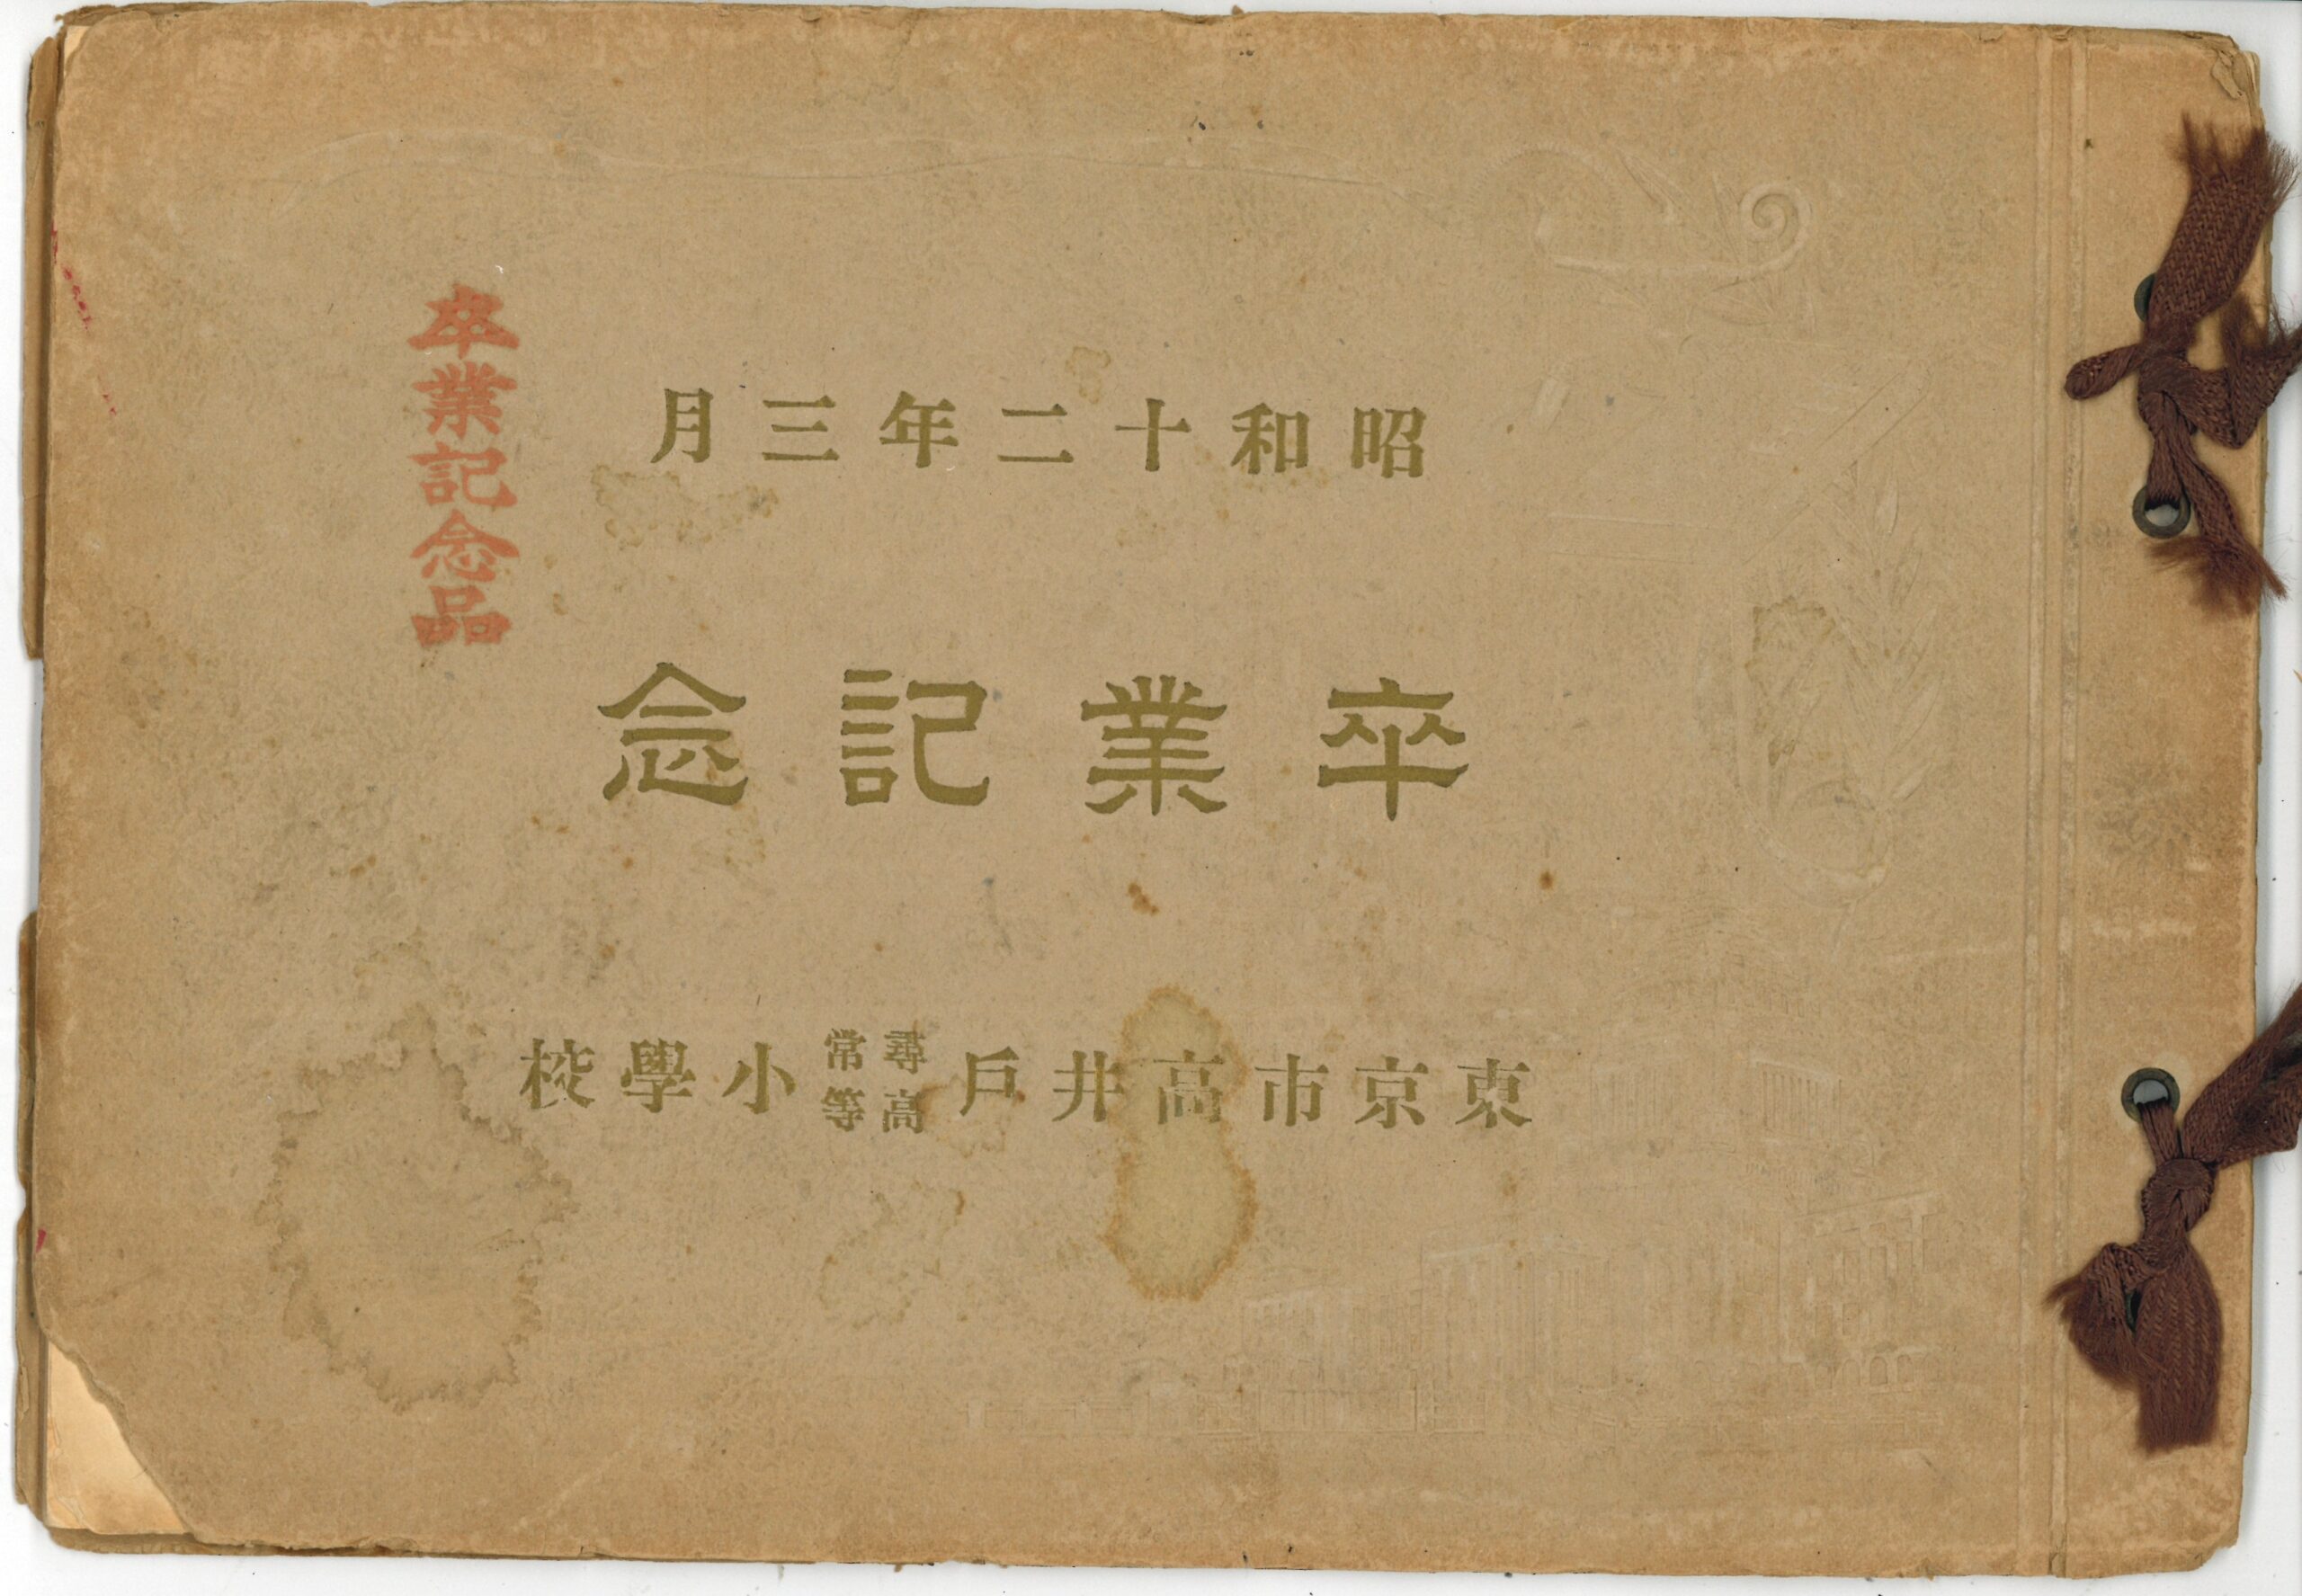 昭和十二年三月
卒業記念
東京市高井戶尋常高等小學校
卒業記念品